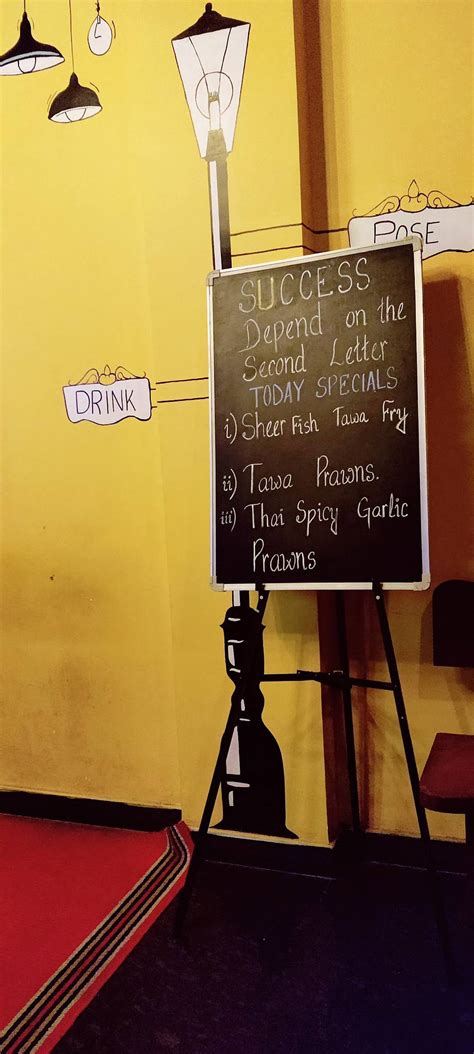 POSE
SUCCESS
Depend on the
Second Letter
TODAY SPECIALS
i) Sheer Fish Tawa Fry
DRINK
ii) Tawa Prawns.
iii) Thai Spicy Garlic
Prawns